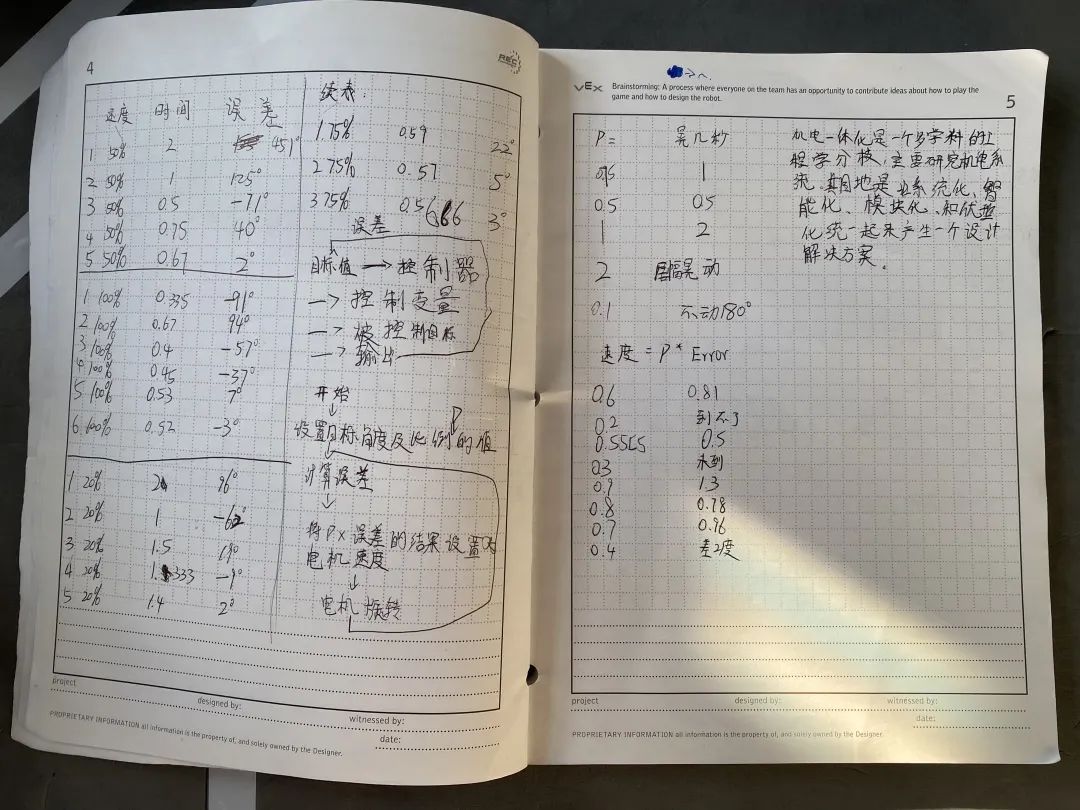 4
REC
速度 时间 误差
1 50% 2 451°
2 50% 1 125°
3 50% 0.5 -71°
4 50% 0.75 40°
5 50% 0.67 2°
1 100% 0.335 -91°
2 100% 0.67 94°
3 100% 0.4 -57°
4 100% 0.45 -37°
5 100% 0.53 7°
6 100% 0.52 -3°
1 20% 2 96°
2 20% 1 -62°
3 20% 1.5 19°
4 20% 1.333 -9°
5 20% 1.4 2°
续表:
1.75% 0.59 22°
2 75% 0.57 5°
3 75% 0.56 3°
误差
目标值→控制器
→控制变量
→被控制目标
→输出
开始
↓
设置目标角度及比例P的值
↓
计算误差
↓
将P×误差的结果设置为
电机速度
↓
电机旋转
project
designed by:
witnessed by:
date:
PROPRIETARY INFORMATION all information is the property of, and solely owned by the Designer.
VEX
Brainstorming: A process where everyone on the team has an opportunity to contribute ideas about how to play the
game and how to design the robot.
5
P= 晃几秒
1
0.5 0.5
1 2
2 晃动
0.1 不动180°
速度=P* Error
0.6 0.81
0.2 到不了
0.55 0.5
0.3 未到
0.9 1.3
0.8 0.78
0.7 0.96
0.4 差2度
机电一体化是一个多学科的工
程学分枝,主要研究机电系
统.其目地是 系统化、智
能化、模块化、和优型
化统一起来产生一个设计
解决方案。
project
designed by:
witnessed by:
date:
PROPRIETARY INFORMATION all information is the property of, and solely owned by the Designer.